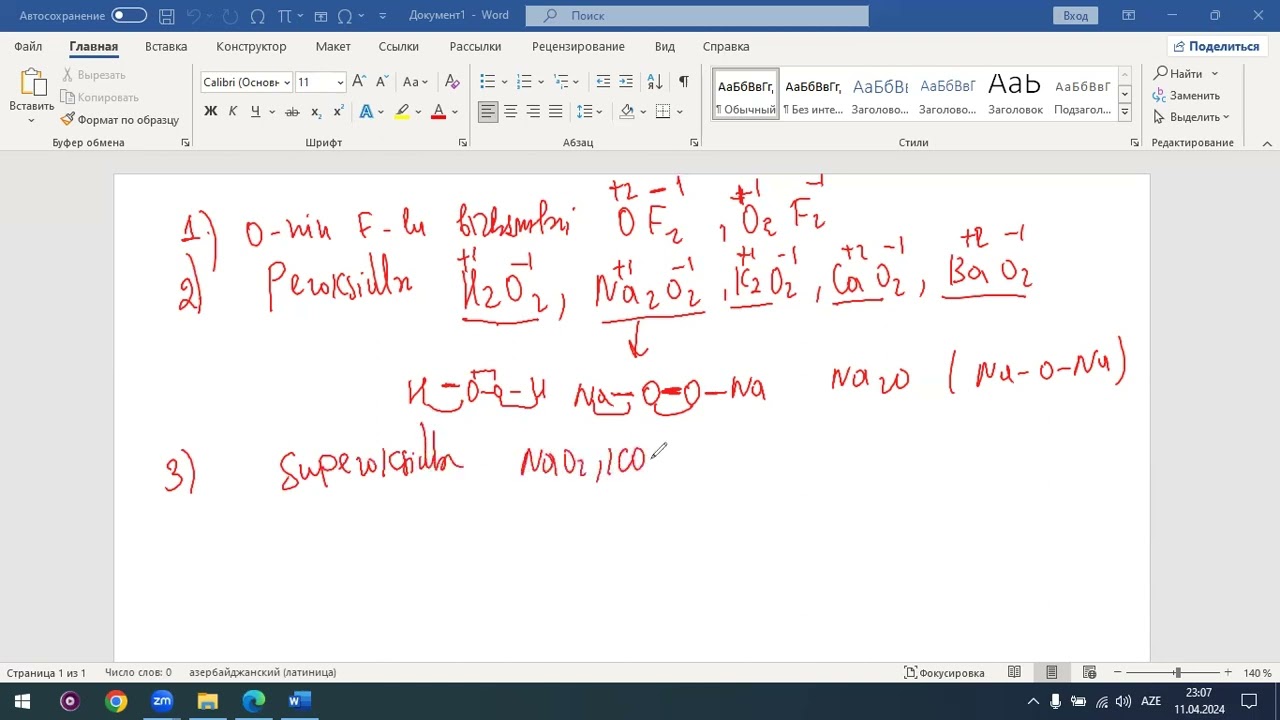 Автосохранение
Документ1 - Word
Поиск
Вход
Файл Главная Вставка Конструктор Макет Ссылки Рассылки Рецензирование Вид Справка
Поделиться
Вставить
Вырезать
Копировать
Формат по образцу
Буфер обмена
Calibri (Основн 11
Ж К Ч
Шрифт
Абзац
АаБбВвГг, АаБбВвГг, АаБбВı АаБбВвГ АаЬ АаБбВвГг
¶ Обычный ¶ Без инте... Заголово... Заголово... Заголовок Подзагол...
Стили
Найти
Заменить
Выделить
Редактирование
+2 -1 +1 -1
1.) O-nin F-lu OF2, O2F2
+1 -1 +1 -1 +1 -1 +2 -1 +2 -1
2) Peroksidlər H2O2, Na2O2, K2O2, CaO2, BaO2
H-O-O-H Na-O-O-Na Na2O (Na-O-Na)
3) Superoksidlər NaO2, KO
Страница 1 из 1 Число слов: 0 азербайджанский (латиница) Фокусировка 140 %
AZE 23:07
11.04.2024